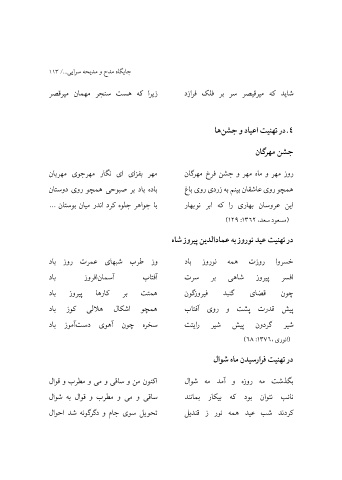 جایگاه مدح و مدیحه سرایی.../ ۱۱۳
شاید که میرقیصر سر بر فلک فرازد زیرا که هست سنجر مهمان میرقصر
۴. در تهنیت اعیاد و جشن‌ها
جشن مهرگان
روز مهر و ماه مهر و جشن فرخ مهرگان مهر بفزای ای نگار مهرجوی مهربان
همچو روی عاشقان بینم به زردی روی باغ باده باد بر صبوحی همچو روی دوستان
این عروسان بهاری را که ابر نوبهار با جواهر جلوه کرد اندر میان بوستان ...
(مسعود سعد، ۱۳۶۲: ۱۲۹)
در تهنیت عید نوروز به عمادالدین پیروز شاه
خسروا روزت همه نوروز باد وز طرب شبهای عمرت روز باد
افسر پیروز شاهی بر سرت آفتاب آسمان‌افروز باد
چون قضای گنبد فیروزگون همتت بر کارها پیروز باد
پیش قدرت پشت و روی آفتاب همچو اشکال هلالی کوز باد
شیر گردون پیش شیر رایتت سخره چون آهوی دست‌آموز باد
(انوری، ۱۳۷۶: ۶۸)
در تهنیت فرارسیدن ماه شوال
بگذشت مه روزه و آمد مه شوال اکنون من و ساقی و می و مطرب و قوال
نائب نتوان بود که بیکار بمانند ساقی و می و مطرب و قوال به شوال
کردند شب عید همه نور ز قندیل تحویل سوی جام و دگرگونه شد احوال